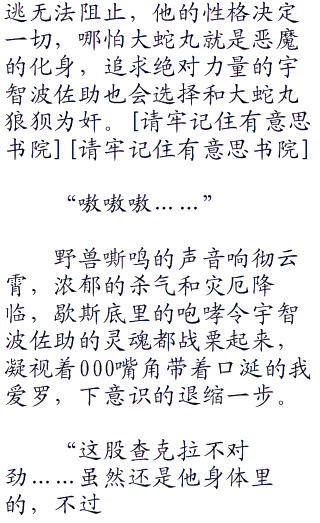 逃无法阻止，他的性格决定
一切，哪怕大蛇丸就是恶魔
的化身，追求绝对力量的宇
智波佐助也会选择和大蛇丸
狼狈为奸。[请牢记住有意思
书院][请牢记住有意思书院]
“嗷嗷嗷……”
野兽嘶鸣的声音响彻云
霄，浓郁的杀气和灾厄降
临，歇斯底里的咆哮令宇智
波佐助的灵魂都战栗起来，
凝视着000嘴角带着口涎的我
爱罗，下意识的退缩一步。
“这股查克拉不对
劲……虽然还是他身体里
的，不过